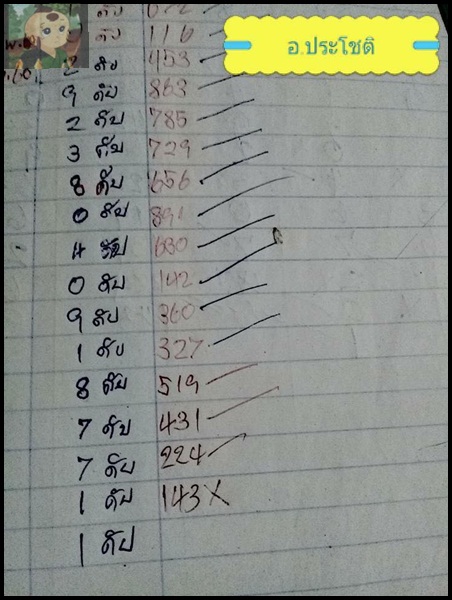 อ.ประโชติ
ดับ 672
ดับ 116
2 ดับ 453
9 ดับ 863
2 ดับ 785
3 ดับ 729
8 ดับ 656
0 ดับ 891
4 ดับ 680
0 ดับ 142
9 ดับ 360
1 ดับ 327
8 ดับ 519
7 ดับ 431
7 ดับ 224
1 ดับ 143 X
1 ดับ